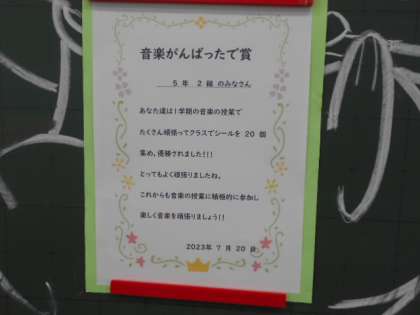 音楽がんばったで賞
5 年 2 組 のみなさん
あなた達は1学期の音楽の授業で
たくさん頑張ってクラスでシールを 20 個
集め、優勝されました!!!
とってもよく頑張りましたね。
これからも音楽の授業に積極的に参加し
楽しく音楽を頑張りましょう!!
2023年 7 月 20 日